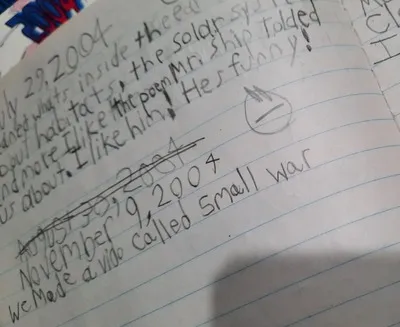 uly 29, 2004
what's inside the
bout habitats, the solar sys
and more I like the poem Mr. Ship tolded
us about. I like him! Hes funny!
August 30, 2004
November 9, 2004
we made a vido called small war